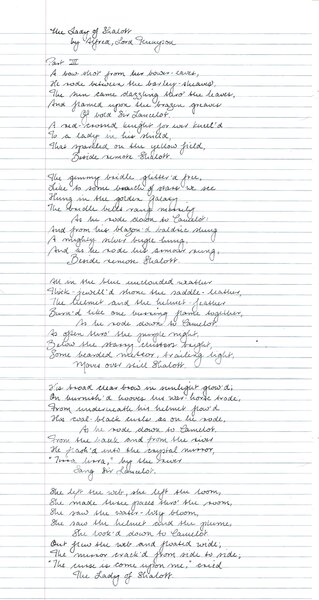 The Lady of Shalott
by Alfred, Lord Tennyson
Part III
A bow-shot from her bower-eaves,
He rode between the barley-sheaves.
The sun came dazzling thro' the leaves,
And flamed upon the brazen greaves
Of bold Sir Lancelot.
A red-cross'd knight for ever kneel'd
To a lady in his shield,
That sparkled on the yellow field,
Beside remote Shalott.
The gemmy bridle glitter'd free,
Like to some branch of stars we see
Hung in the golden Galaxy.
The bridle bells rang merrily
As he rode down to Camelot:
And from his blazon'd baldric slung
A mighty silver bugle hung,
And as he rode his armour rung,
Beside remote Shalott.
All in the blue unclouded weather
Thick-jewell'd shone the saddle-leather,
The helmet and the helmet-feather
Burn'd like one burning flame together,
As he rode down to Camelot.
As often thro' the purple night,
Below the starry clusters bright,
Some bearded meteor, trailing light,
Moves over still Shalott.
His broad clear brow in sunlight glow'd;
On burnish'd hooves his war-horse trode;
From underneath his helmet flow'd
His coal-black curls as on he rode,
As he rode down to Camelot.
From the bank and from the river
He flash'd into the crystal mirror,
"Tirra lirra," by the river
Sang Sir Lancelot.
She left the web, she left the loom,
She made three paces thro' the room,
She saw the water-lily bloom,
She saw the helmet and the plume,
She look'd down to Camelot.
Out flew the web and floated wide;
The mirror crack'd from side to side;
"The curse is come upon me," cried
The Lady of Shalott.